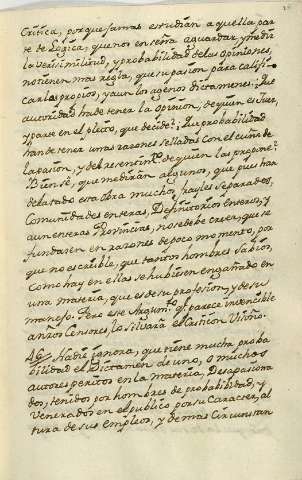 Critica, porque jamas estudian aquella par
te de Logica, que nos enseña aguardar, y medir
la verisimilitud, y probabilidad de las Opiniones,
no tienen mas regla, que su pasion para califi-
car los propios, y aun los agenos dictamenes. ¿Que
autoridad ha de tener la Opinion, de quien es Juez,
y parte en el pleito, que decide? ¿Que probabilidad
han de tener unas razones selladas con el cuño de
la pasion, y del resentimto de quien las propone?
Bien se, que me dirán algunos, que pues han
delatado esta Obra muchos frayles separados,
Comunidades enteras, Definitorios enteros, y
aun enteras Provincias, no se debe creer, que se
fundasen en razones de poco momento, por
que no es creible, que tantos hombres sabios,
como hay en ellas se hubiesen engañado en
una materia, que es de su profesion, y de su
manejo. Pero este Argumto, qe parece invencible
a nros Censores, lo silvará el Critico Visoño.
46 Nadie ignora, que tiene mucha proba
bilidad el Dictamen de uno, o muchos
autores peritos en la materia, desapasiona
dos, tenidos por hombres de probabilidad, y
venerados en el publico por su Caracter, al
tura de sus empleos, y demas circunstan